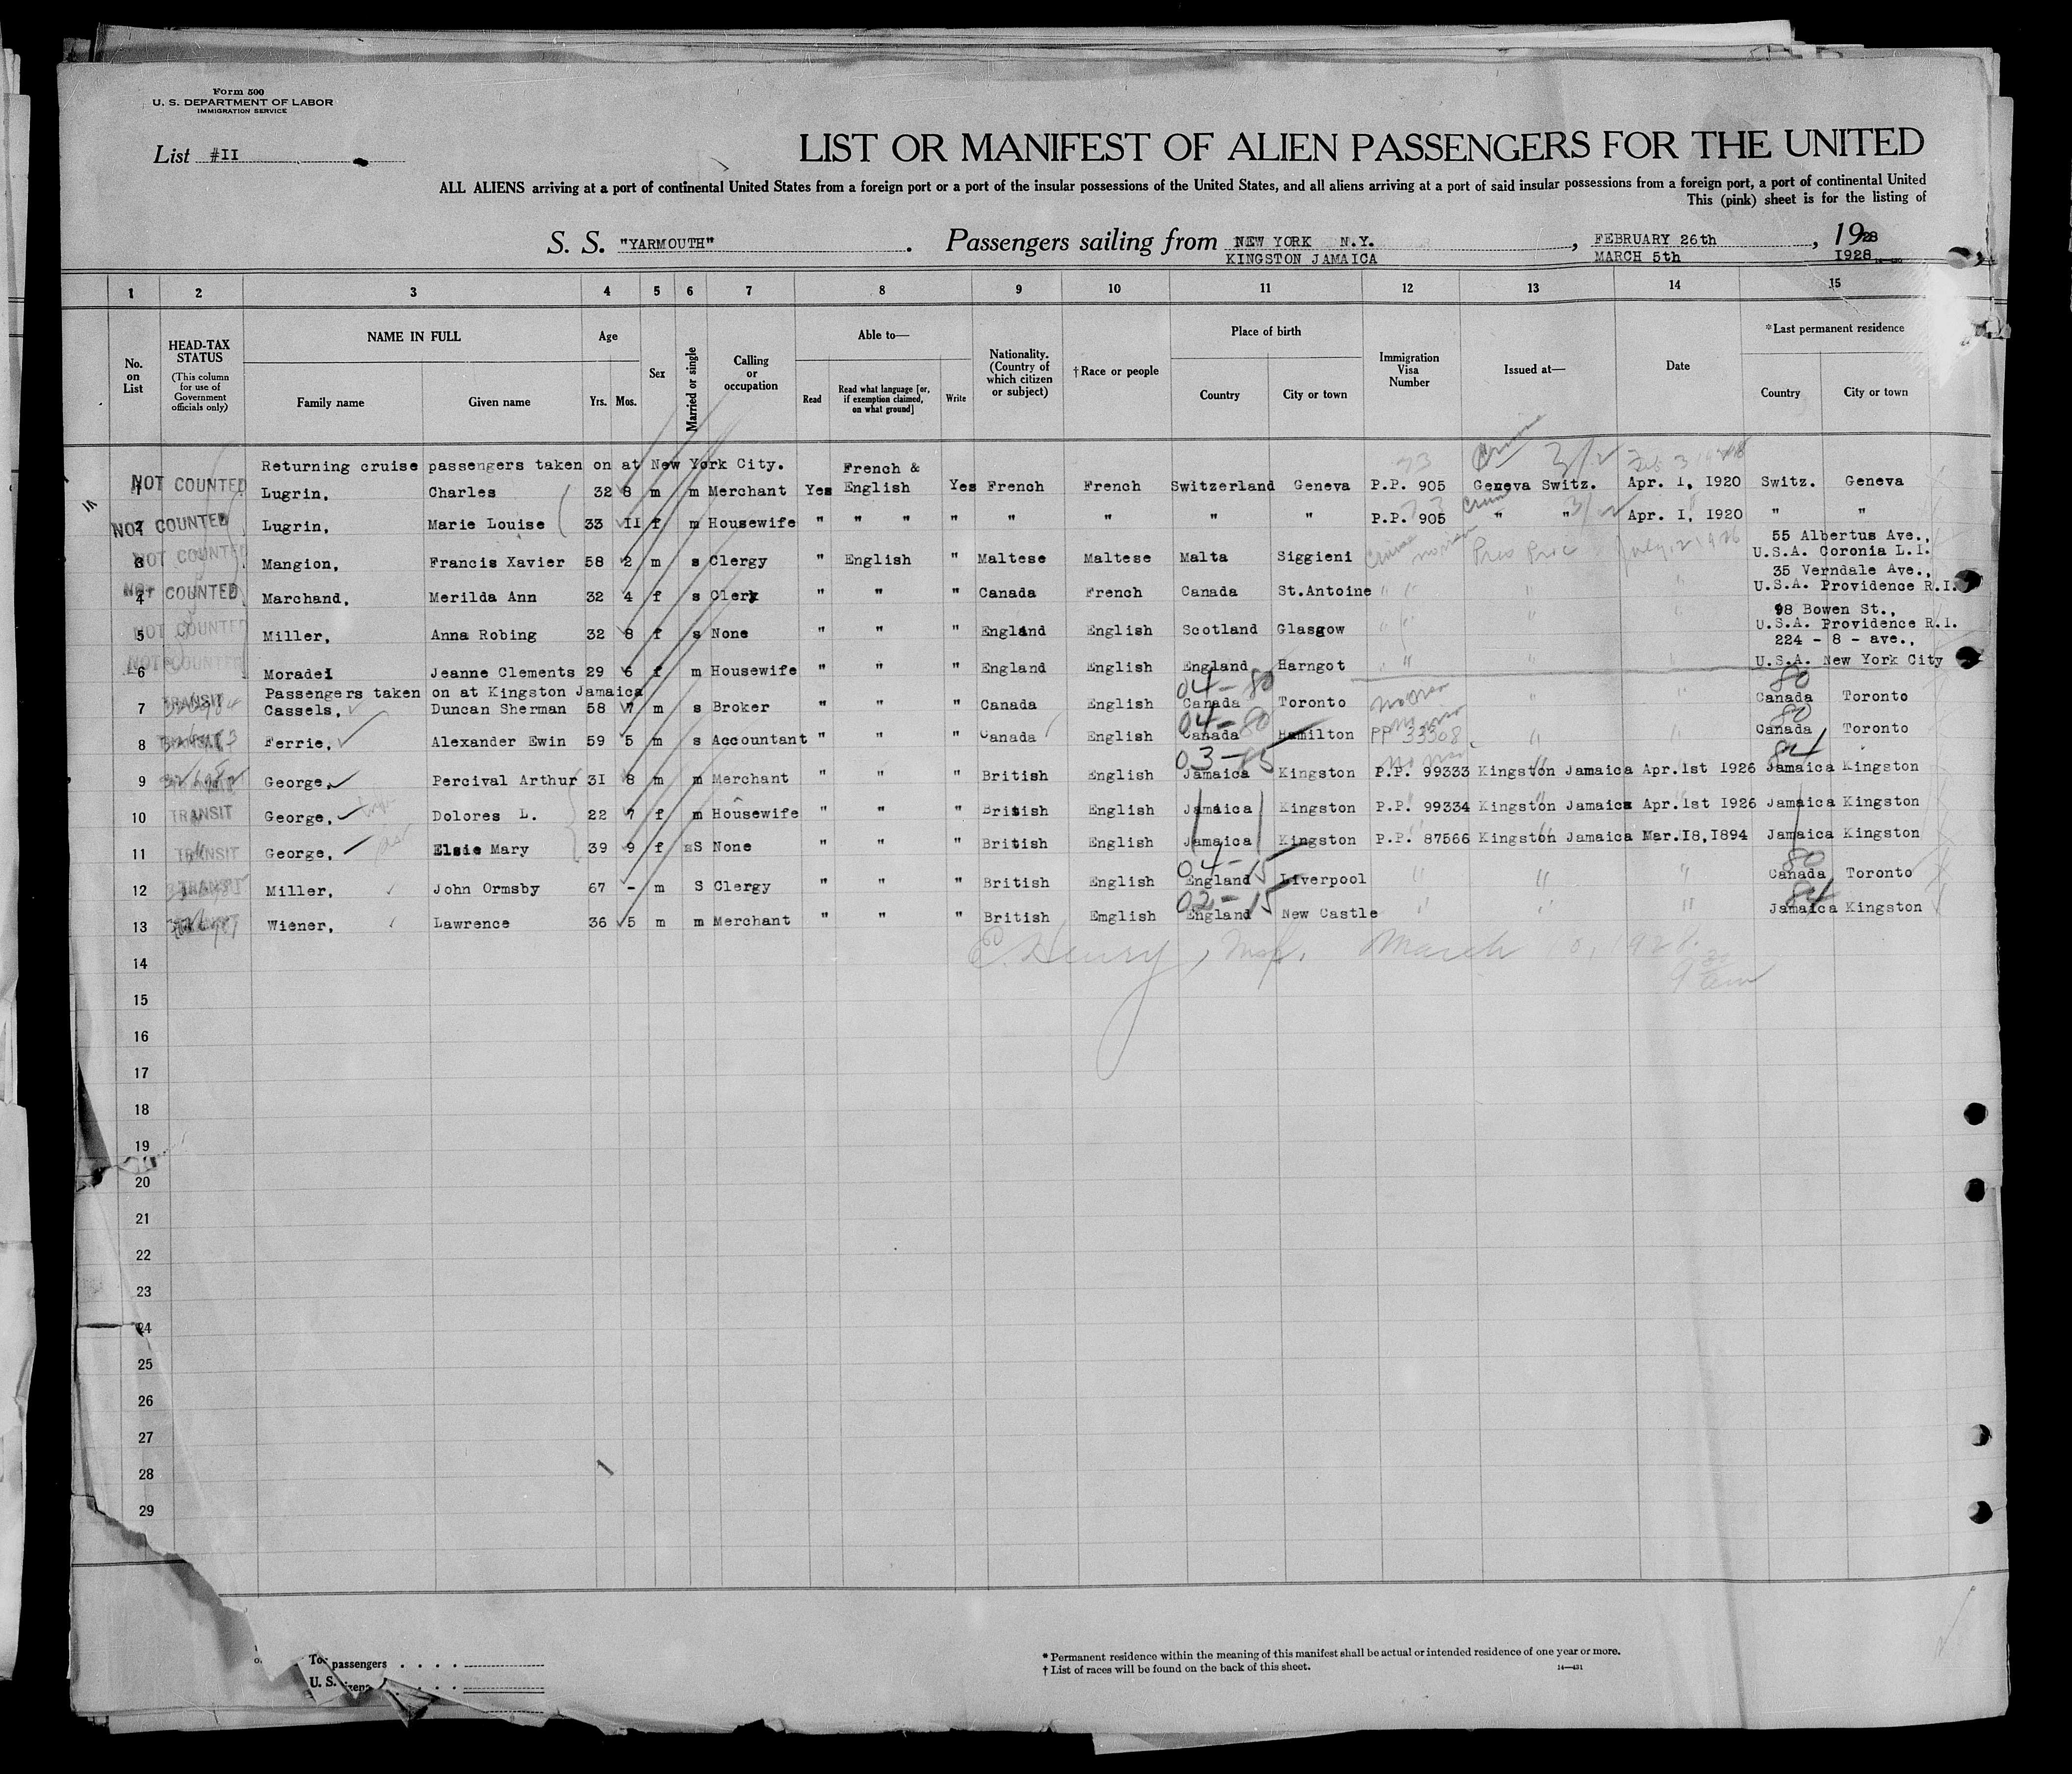 Form 500
U. S. DEPARTMENT OF LABOR
IMMIGRATION SERVICE
List #II
LIST OR MANIFEST OF ALIEN PASSENGERS FOR THE UNITED
ALL ALIENS arriving at a port of continental United States from a foreign port or a port of the insular possessions of the United States, and all aliens arriving at a port of said insular possessions from a foreign port, a port of continental United
This (pink) sheet is for the listing of
S. S. "YARMOUTH". Passengers sailing from NEW YORK N.Y., FEBRUARY 26th, 1928
KINGSTON JAMAICA MARCH 5th 1928
1 2 3 4 5 6 7 8 9 10 11 12 13 14 15
No. on List
HEAD-TAX STATUS (This column for use of Government officials only)
NAME IN FULL Family name Given name
Age Yrs. Mos.
Sex
Married or single
Calling or occupation
Able to— Read Read what language [or, if exemption claimed, on what ground] Write
Nationality. (Country of which citizen or subject)
†Race or people
Place of birth Country City or town
Immigration Visa Number
Issued at—
Date
*Last permanent residence Country City or town
Returning cruise passengers taken on at New York City.
1 NOT COUNTED Lugrin, Charles 32 8 m m Merchant Yes French & English Yes French French Switzerland Geneva P.P. 905 Geneva Switz. Apr. 1, 1920 Switz. Geneva
2 NOT COUNTED Lugrin, Marie Louise 33 II f m Housewife " " " " " " " " P.P. 905 " " Apr. I, 1920 " "
55 Albertus Ave.,
3 NOT COUNTED Mangion, Francis Xavier 58 2 m s Clergy " English " Maltese Maltese Malta Siggieni Cruise July 12 1926 U.S.A. Coronia L.I.
35 Verndale Ave.,
4 NOT COUNTED Marchand, Merilda Ann 32 4 f s Clerk " " " Canada French Canada St.Antoine " " " U.S.A. Providence R.I.
98 Bowen St.,
5 NOT COUNTED Miller, Anna Robing 32 8 f s None " " " England English Scotland Glasgow " " " U.S.A. Providence R.I.
224 - 8 - ave.,
6 NOT COUNTED Moradei Jeanne Clements 29 6 f m Housewife " " " England English England Harngot " " " U.S.A. New York City
Passengers taken on at Kingston Jamaica 04-80 80
7 TRANSIT Cassels, Duncan Sherman 58 7 m s Broker " " " Canada English Canada Toronto " " Canada Toronto
04-80 80
8 TRANSIT Ferrie, Alexander Ewin 59 5 m s Accountant " " " Canada English Canada Hamilton PP 33308 " " Canada Toronto
84
9 George, Percival Arthur 31 8 m m Merchant " " " British English Jamaica Kingston P.P. 99333 Kingston Jamaica Apr.1st 1926 Jamaica Kingston
10 TRANSIT George, Dolores L. 22 7 f m Housewife " " " British English Jamaica Kingston P.P. 99334 Kingston Jamaica Apr.1st 1926 Jamaica Kingston
11 TRANSIT George, Elsie Mary 39 9 f S None " " " British English Jamaica Kingston P.P. 87566 Kingston Jamaica Mar.18,1894 Jamaica Kingston
04-15 80
12 TRANSIT Miller, John Ormsby 67 - m S Clergy " " " British English England Liverpool " " " Canada Toronto
02-15 84
13 Wiener, Lawrence 36 5 m m Merchant " " " British Emglish England New Castle " " " Jamaica Kingston
14 Henry, March 10, 1928.
15
16
17
18
19
20
21
22
23
24
25
26
27
28
29
passengers
U. S.
* Permanent residence within the meaning of this manifest shall be actual or intended residence of one year or more.
† List of races will be found on the back of this sheet. 14—421